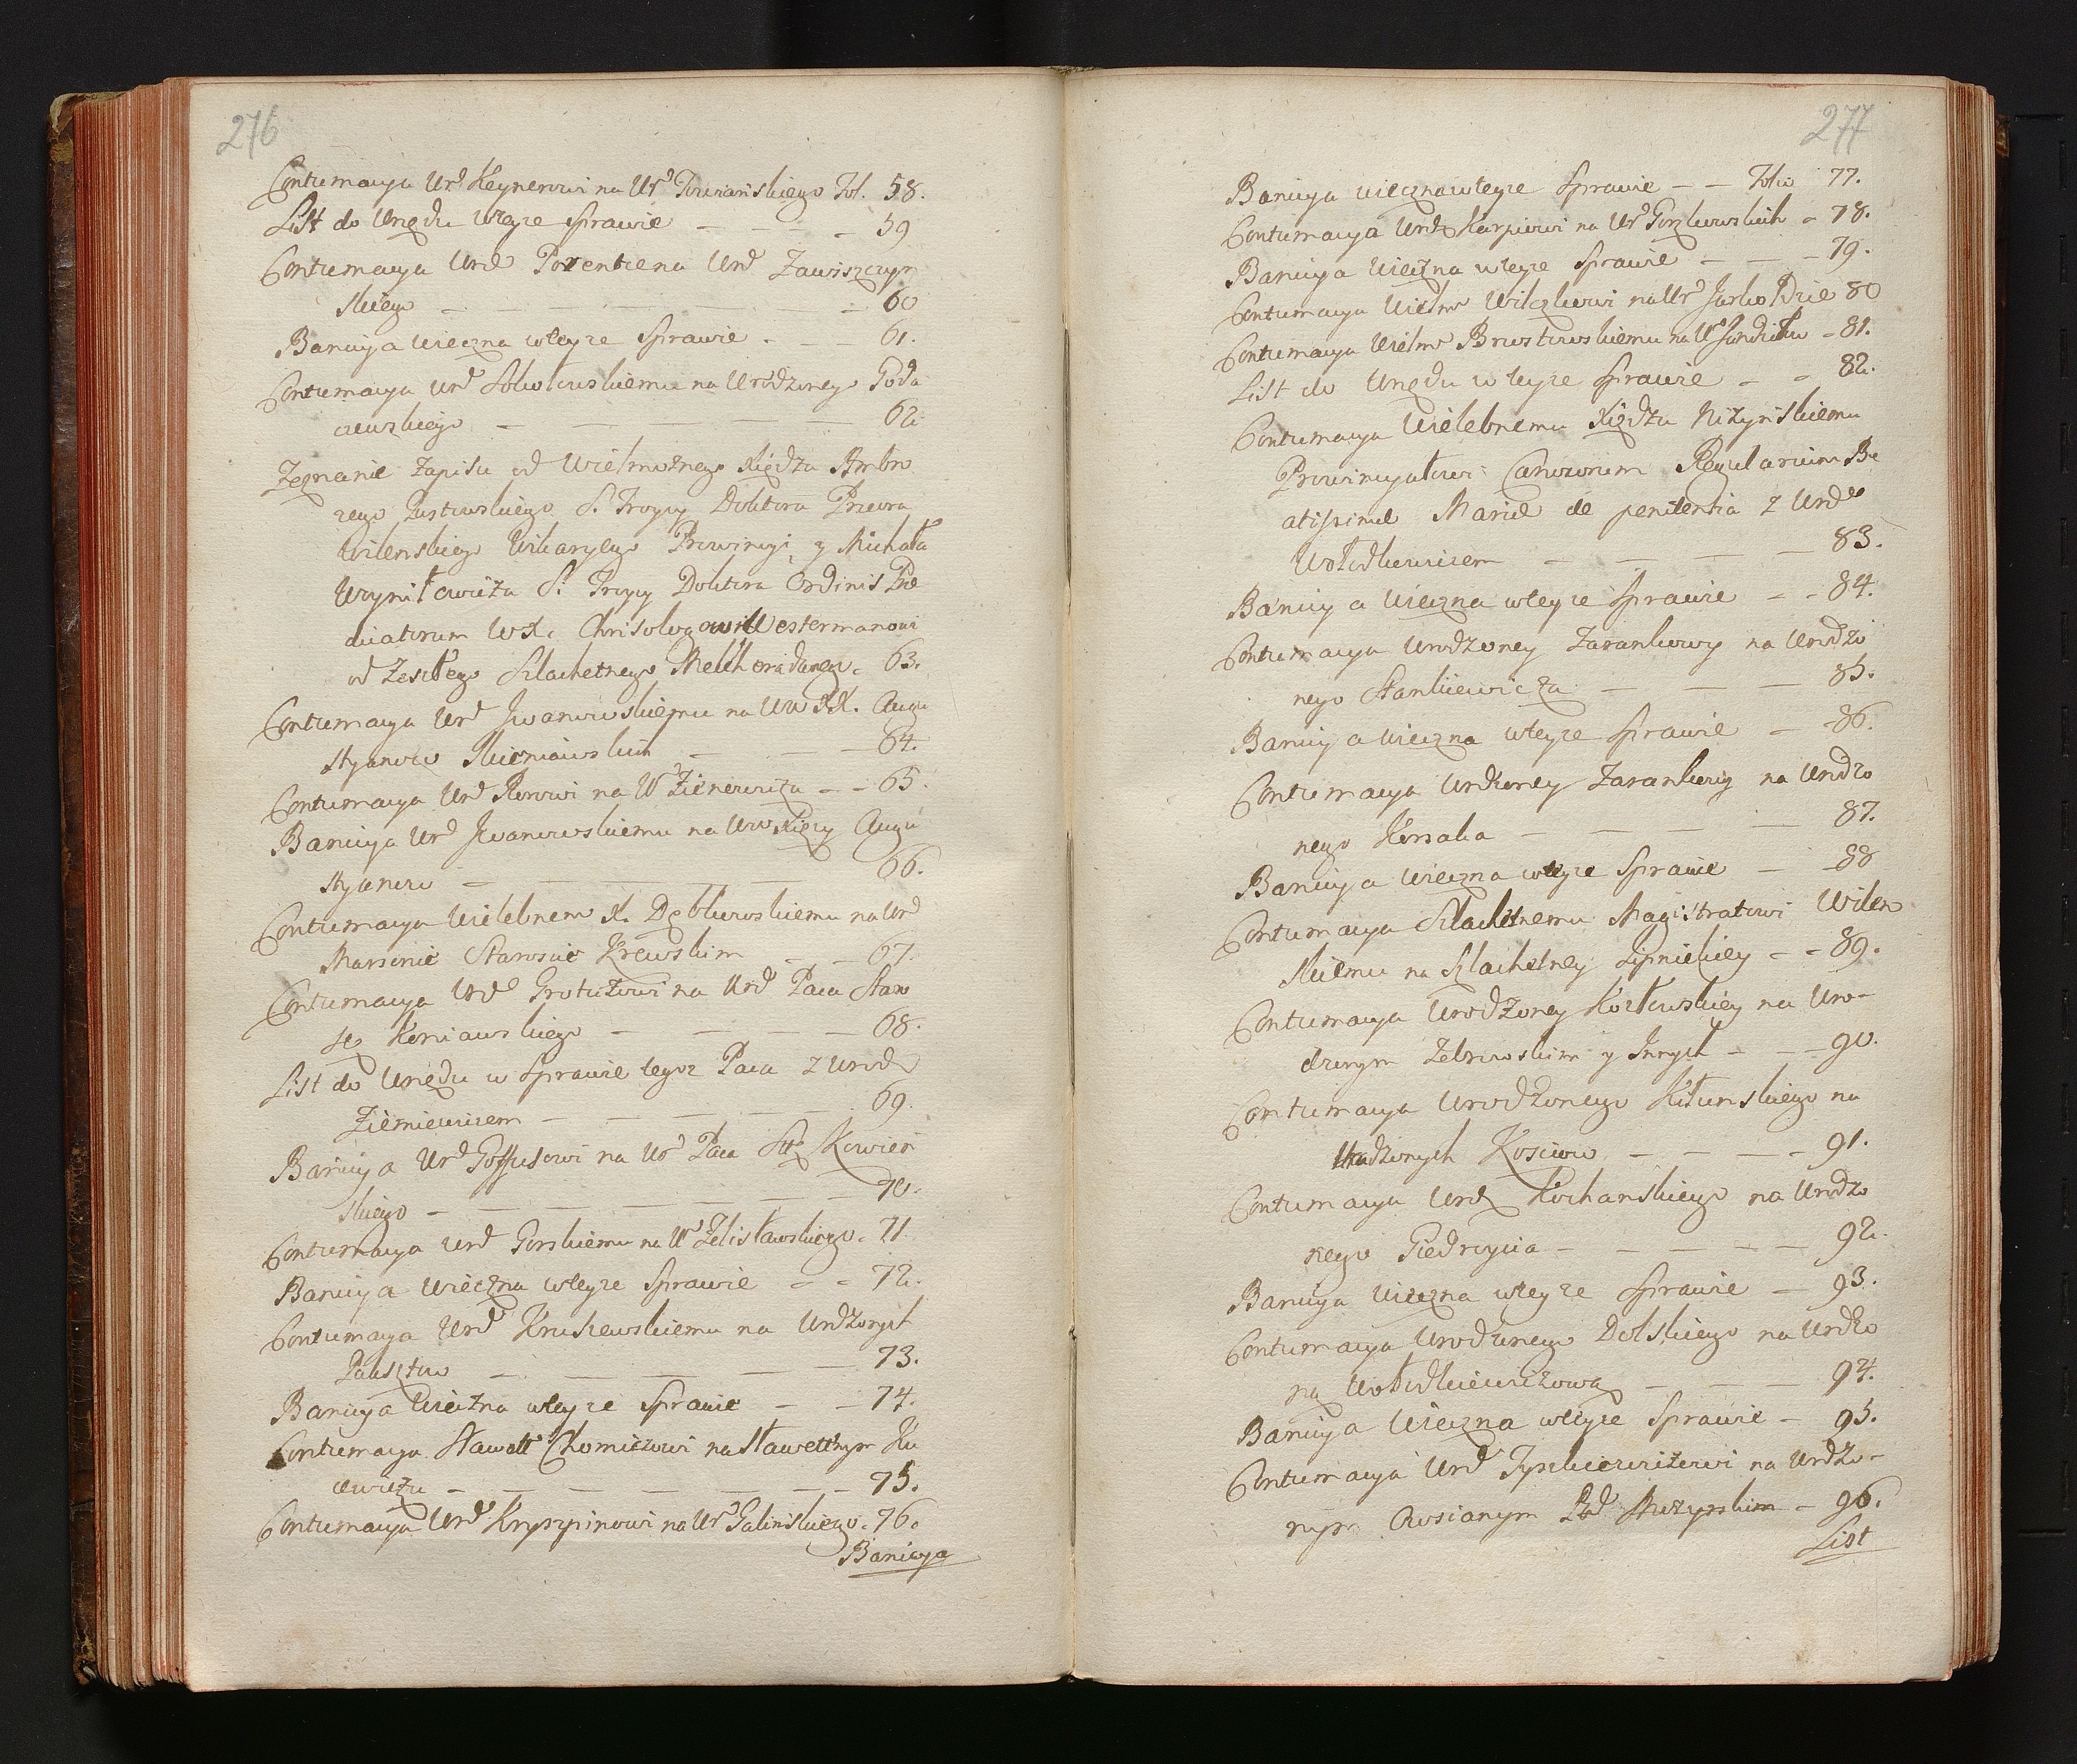 276
Contumacya Urd Keynerowi na Ur Towiańskiego Fol. 58.
List do Urzędu wteyze Sprawie 59
Contumacya Urd na Urd Zawiszczyn
skiego 60
Banicya wieczna wteyze Sprawie 61.
Contumacya Urd Sokołowskiemu na Urodzonego Poda
rzewskiego 62
Zeznanie Zapisu od Wielmożnego Xiędza Ambro
zego Justowskiego S. Troycy Doktora Przeora
Wilenskiego Wikaryego Prowincyi y Michała
Woyniłowicza S. Troycy Doktora Ordinis Præ
dicatorum WX. Chrisologowi Westermanowi
od Zeszłego Szlachetnego 63.
Contumacya Urd Jwanowskiemu na Ww XX. Augu
styanow 64.
Contumacya Urd Rorowi na Ur Zienowicza 65.
Banicya Ur Jwanowskiemu na Ww Xięży Augu
styanow 66.
Contumacya Wielebnem X. Dębkowskiemu na Urd
Marsonie Staroscie Krewskim 67.
Contumacya Urd Grotuzowi na Urd Paca Staro
stę Koniawskiego 68.
List do Urzędu w Sprawie tegoz Paca z Urod
Ziemiewiczem 69.
Banicya Urd na Ur Paca Sttę Kowień
skiego 70.
Contumacya Urd Gorskiemu na Ur Zelisławskiego 71.
Banicya wieczna wteyze Sprawie 72.
Contumacya Urd Kruszewskiemu na Urdzonych
Pakosztow 73.
Banicya Wieczna wteyze Sprawie 74.
Contumacya Sławett Chomiczowi na Sławettnym Ku
cewiczu 75.
Contumacya Urd Kryszpinowi na Ur Galinskiego 76.
Banicya
277
Banicya wieczna wteyze Sprawie Folio 77.
Contumacya Urdz Karpiowi na Ur Gorzkowskich 78.
Banicya Wieczna wteyze Sprawie 79.
Contumacya Wielm Wilczkowi na Ur 80
Contumacya Wielm Brzostowskiemu na Ur 81.
List do Urzędu w teyze Sprawie 82.
Contumacya Wielebnemu Xiędzu Nizynskiemu
Prowincyałowi Canonorum Regularium Be
atissimæ Mariæ de penitentia z Urd
Wołodkowiczem 83.
Banicya Wieczna wteyze Sprawie 84.
Contumacya Urodzoney Zarankowy na Urodzo
nego Stankiewicza 85.
Banicya wieczna wteyze Sprawie 86.
Contumacya Urdzoney Zarankowy na Urodzo
nego Korsaka 87.
Banicya wieczna wteyze Sprawie 88
Contumacya Szlachetnemu Magistratowi Wilen
skiemu na Szlachetney Lipnickiey 89.
Contumacya Urodzoney Kozłowskiey na Uro-
dzonym Zebrowskim y Jnnych 90.
Contumacya Urodzonego Kitunskiego na
Urodzonych Kosciow 91.
Contumacya Urdz Kochanskiego na Urodzo
nego Giedroycia 92.
Banicya Wieczna wteyze Sprawie 93.
Contumacya Urodzonego Dolskiego na Urdzo
ną Wołodkiewiczową 94.
Banicya Wieczna wteyze Sprawie 95.
Contumacya Urd Tyszkiewiczowi na Urdzo-
nym Owsianym 96.
List